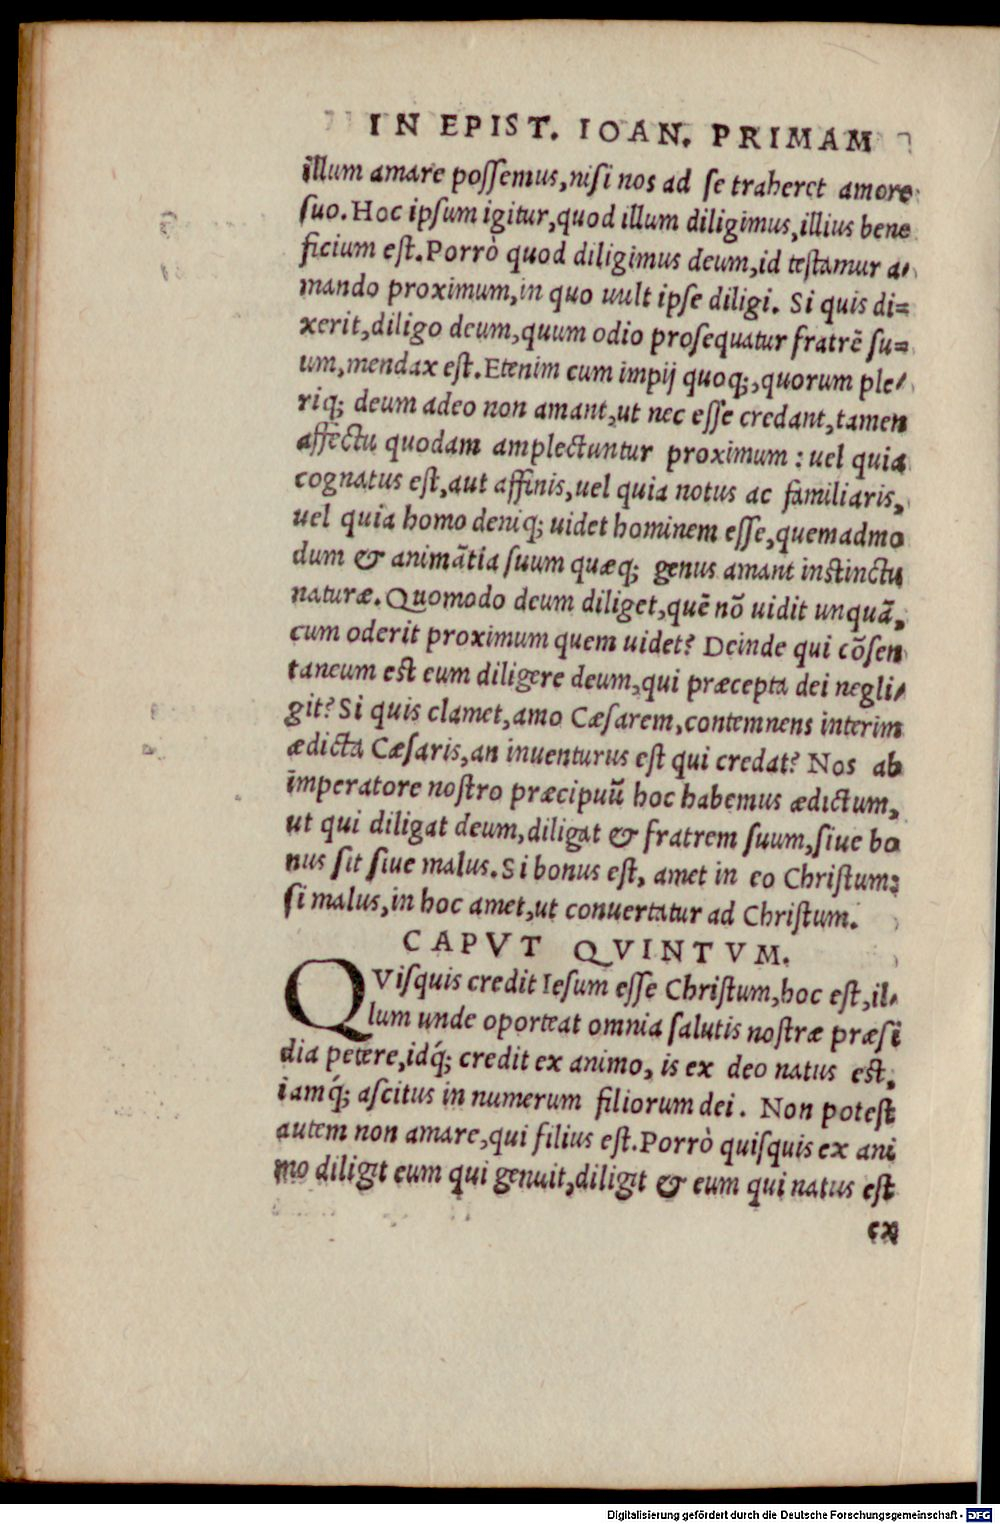 IN EPIST. IOAN. PRIMAM
illum amare poſſemus,niſi nos ad ſe traheret amore
ſuo.Hoc ipſum igitur,quod illum diligimus,illius bene
ficium eſt.Porrò quod diligimus deum,id teſtamur a-
mando proximum,in quo uult ipſe diligi. Si quis di=
xerit,diligo deum,quum odio proſequatur fratrē ſu=
um,mendax eſt.Etenim cum impij quoq;,quorum ple-
riq; deum adeo non amant,ut nec eſſe credant,tamen
affectu quodam amplectuntur proximum : uel quia
cognatus eſt,aut affinis,uel quia notus ac familiaris,
uel quia homo deniq; uidet hominem eſſe,quemadmo
dum & animātia ſuum quæq; genus amant inſtinctu
naturæ.Quomodo deum diliget,quē nō uidit unquā,
cum oderit proximum quem uidet? Deinde qui cōſen
taneum est eum diligere deum,qui præcepta dei negli-
git? Si quis clamet,amo Cæſarem,contemnens interim
ædicta Cæſaris,an inuenturus eſt qui credat? Nos ab
imperatore noſtro præcipuū hoc habemus ædictum,
ut qui diligat deum,diligat & fratrem ſuum,ſiue bo
nus ſit ſiue malus.Si bonus eſt, amet in eo Chriſtum:
ſi malus,in hoc amet,ut conuertatur ad Chriſtum.
CAPVT QVINTVM.
QViſquis credit Ieſum eſſe Chriſtum,hoc eſt,il-
lum unde oporteat omnia ſalutis noſtræ præſi
dia petere,idq́; credit ex animo, is ex deo natus eſt,
iamq́; aſcitus in numerum filiorum dei. Non poteſt
autem non amare,qui filius eſt.Porrò quiſquis ex ani
mo diligit eum qui genuit,diligit & eum qui natus eſt
ex
Digitalisierung gefördert durch die Deutsche Forschungsgemeinschaft - DFG